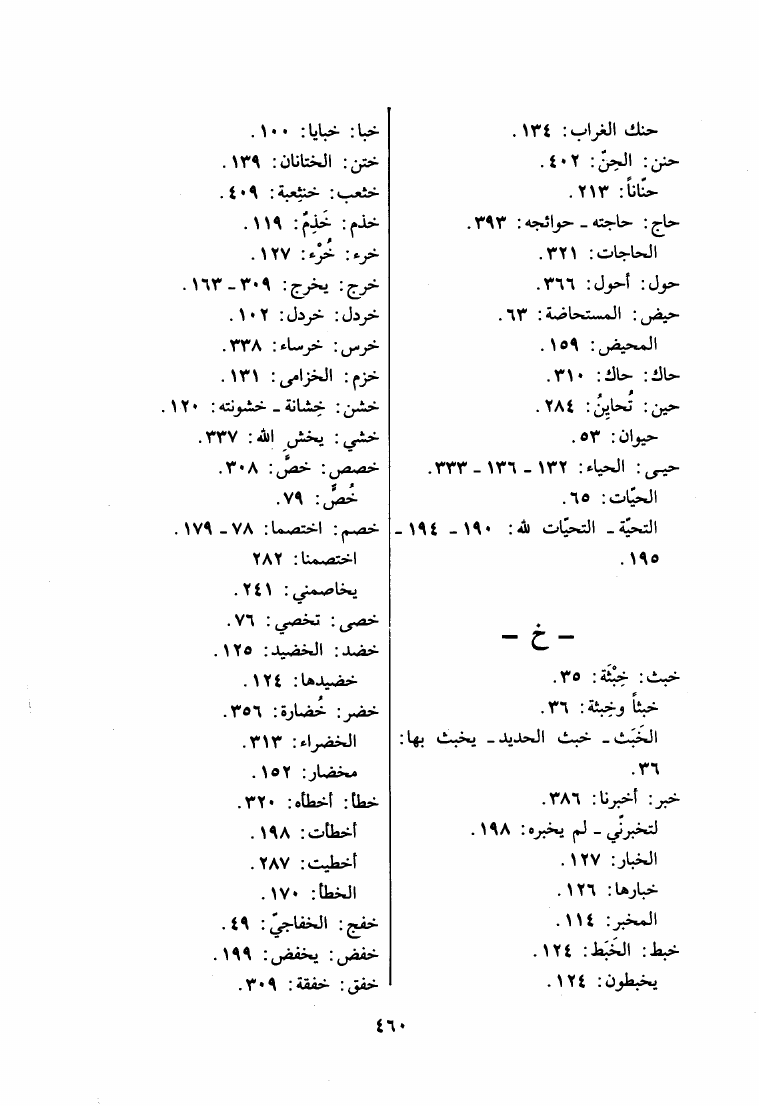 حنك الغراب: ١٣٤.
حنن: الجِنّ: ٤٠٢.
حنّاناً: ٢١٣.
حاج: حاجته ـ حوائجه: ٣٩٣.
الحاجات: ٣٢١.
حول: أحول: ٣٦٦.
حيض: المستحاضة: ٦٣.
المحيض: ١٥٩.
حاك: حاك: ٣١٠.
حين: تُحايِنُ: ٢٨٤.
حيوان: ٥٣.
حيـى: الحياء: ١٣٢ ـ ١٣٦ ـ ٣٣٣.
الحيّات: ٦٥.
التحيّة ـ التحيّات لله: ١٩٠ ـ ١٩٤ ـ
١٩٥.
ـ خ ـ
خبث: خِبْثَة: ٣٥.
خبثاً وخِبثة: ٣٦.
الخَبَث ـ خبث الحديد ـ يخبث بها:
٣٦.
خبر: أخبرنا: ٣٨٦.
لتخبرنّي ـ لم يخبره: ١٩٨.
الخبار: ١٢٧.
خبارها: ١٢٦.
المخبر: ١١٤.
خبط: الخَبَط: ١٢٤.
يخبطون: ١٢٤.
خبا: خبايا: ١٠٠.
ختن: الختانان: ١٣٩.
خثعب: خنثِعبة: ٤٠٩.
خذم: خَذِمٌ: ١١٩.
خرء: خُرْء: ١٢٧.
خرج: يخرج: ٣٠٩ ـ ١٦٣.
خردل: خردل: ١٠٢.
خرس: خرساء: ٣٣٨.
خزم: الخزامى: ١٣١.
خشن: خِشانة ـ خشونته: ١٢٠.
خشي: يخش الله: ٣٣٧.
خصص: خصَّ: ٣٠٨.
خُصٌّ: ٧٩.
خصم: اختصما: ٧٨ ـ ١٧٩.
اختصمنا: ٢٨٢
يخاصمني: ٢٤١.
خصى: تخصي: ٧٦.
خضد: الخضيد: ١٢٥.
خضيدها: ١٢٤.
خضر: خُضارة: ٣٥٦.
الخضراء: ٣١٣.
مخضار: ١٥٢.
خطأ: أخطأه: ٣٢٠.
أخطأت: ١٩٨.
أخطيت: ٢٨٧.
الخطأ: ١٧٠.
خفج: الخفاجيّ: ٤٩.
خفض: يخفض: ١٩٩.
خفق: خفقة: ٣٠٩.
٤٦٠